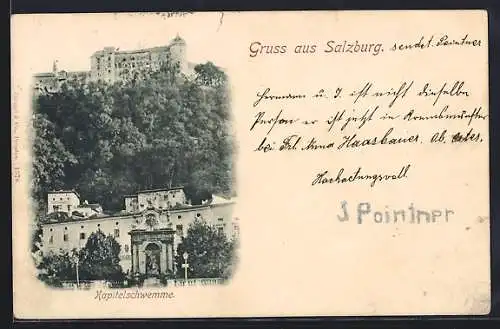 Gruss aus Salzburg. sendet Pointner
Hermann u. J. ist nicht dieselbe
Person er ist jetzt in Kremsmünster
bei Frl. Anna Haasbauer, ob.
Hochachtungsvoll.
J Pointner
Kapitelschwemme.